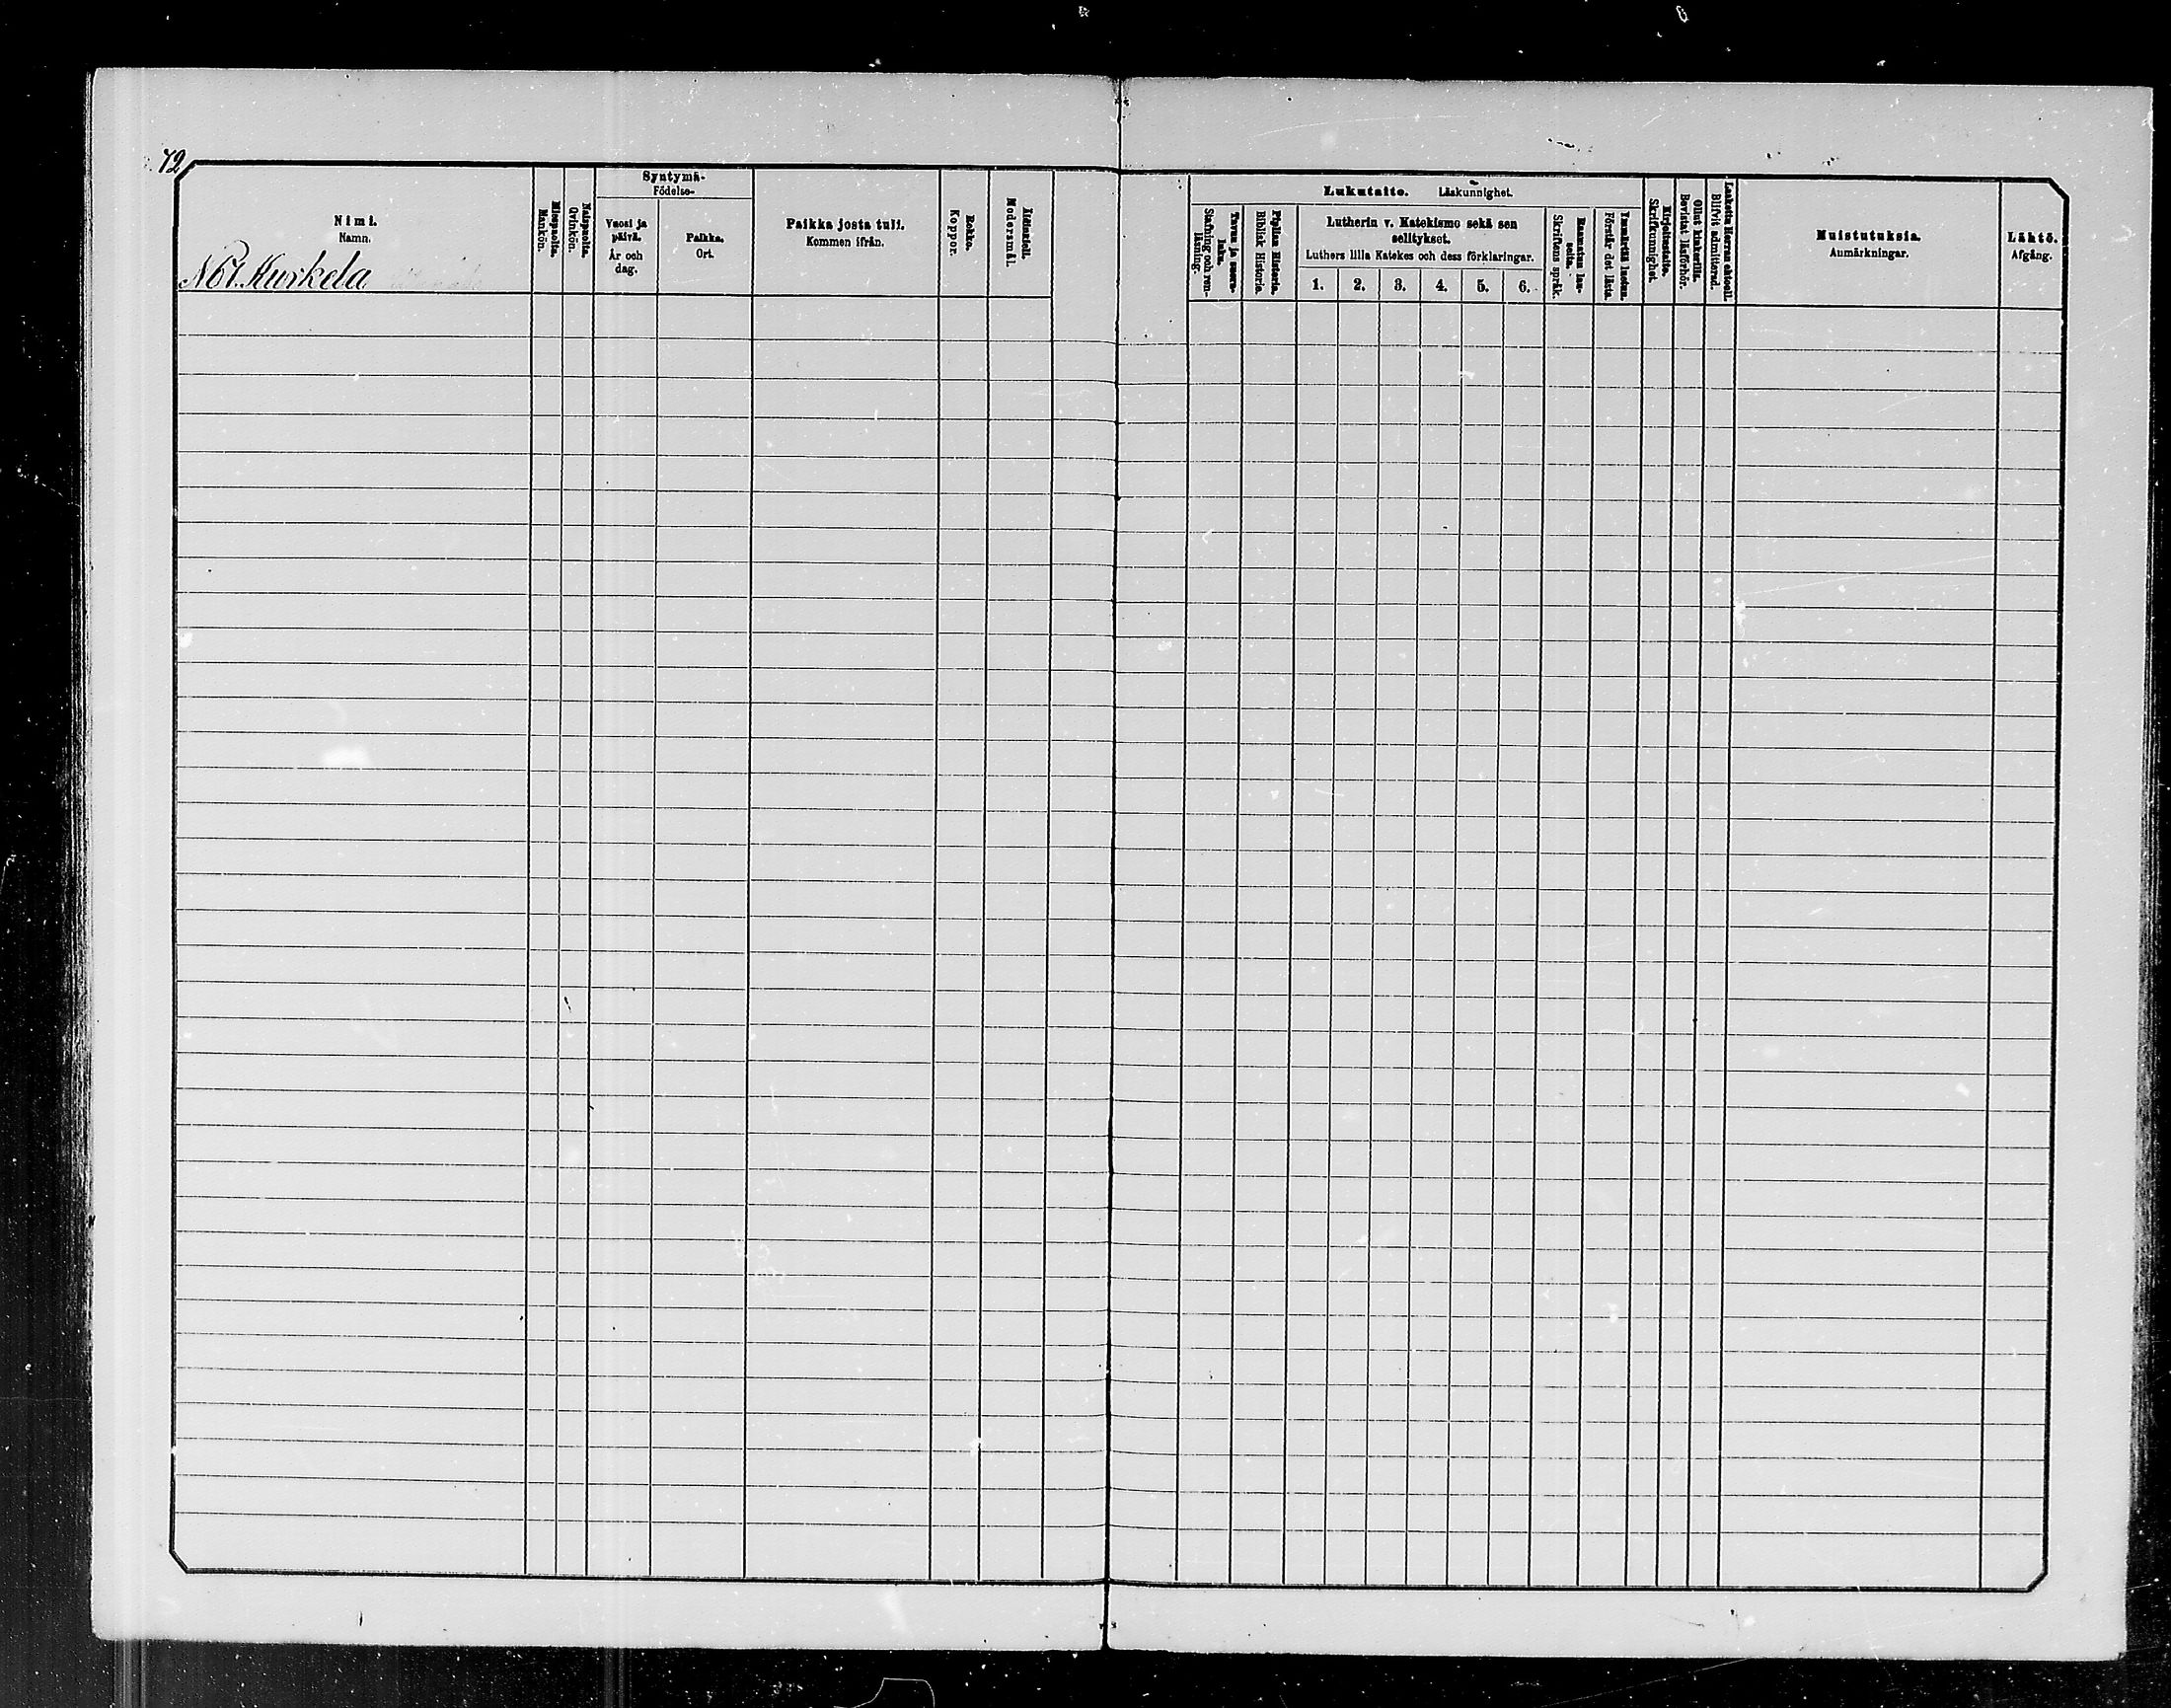 72
Nimi.
Namn.
N:o 1. Kurkela
Miespuolta.
Mankön.
Naispuolta.
Qvinkön.
Syntymä-
Födelse-
Vuosi ja
päivä.
År och
dag.
Paikka.
Ort.
Paikka josta tuli.
Kommen ifrån.
Rokko.
Koppor.
Äidinkieli.
Modersmål.
Lukutaito. Läskunnighet.
Tavuu ja suora-
luku.
Stafning och ren-
läsning.
Piplian Historia.
Biblisk Historie.
Lutherin v. Katekismo sekä sen
selitykset.
Luthers lilla Katekes och dess förklaringar.
1. 2. 3. 4. 5. 6.
Raamatun lau-
seita.
Skriftens språk.
Ymmärtää luetun.
Förstår det lästa.
Kirjoitustaito.
Skrifkunnighet.
Ollut kinkerillä.
Bevistat läsförhör.
Laskettu Herran ehtooll.
Blifvit admitterad.
Muistutuksia.
Anmärkningar.
Lähtö.
Afgång.